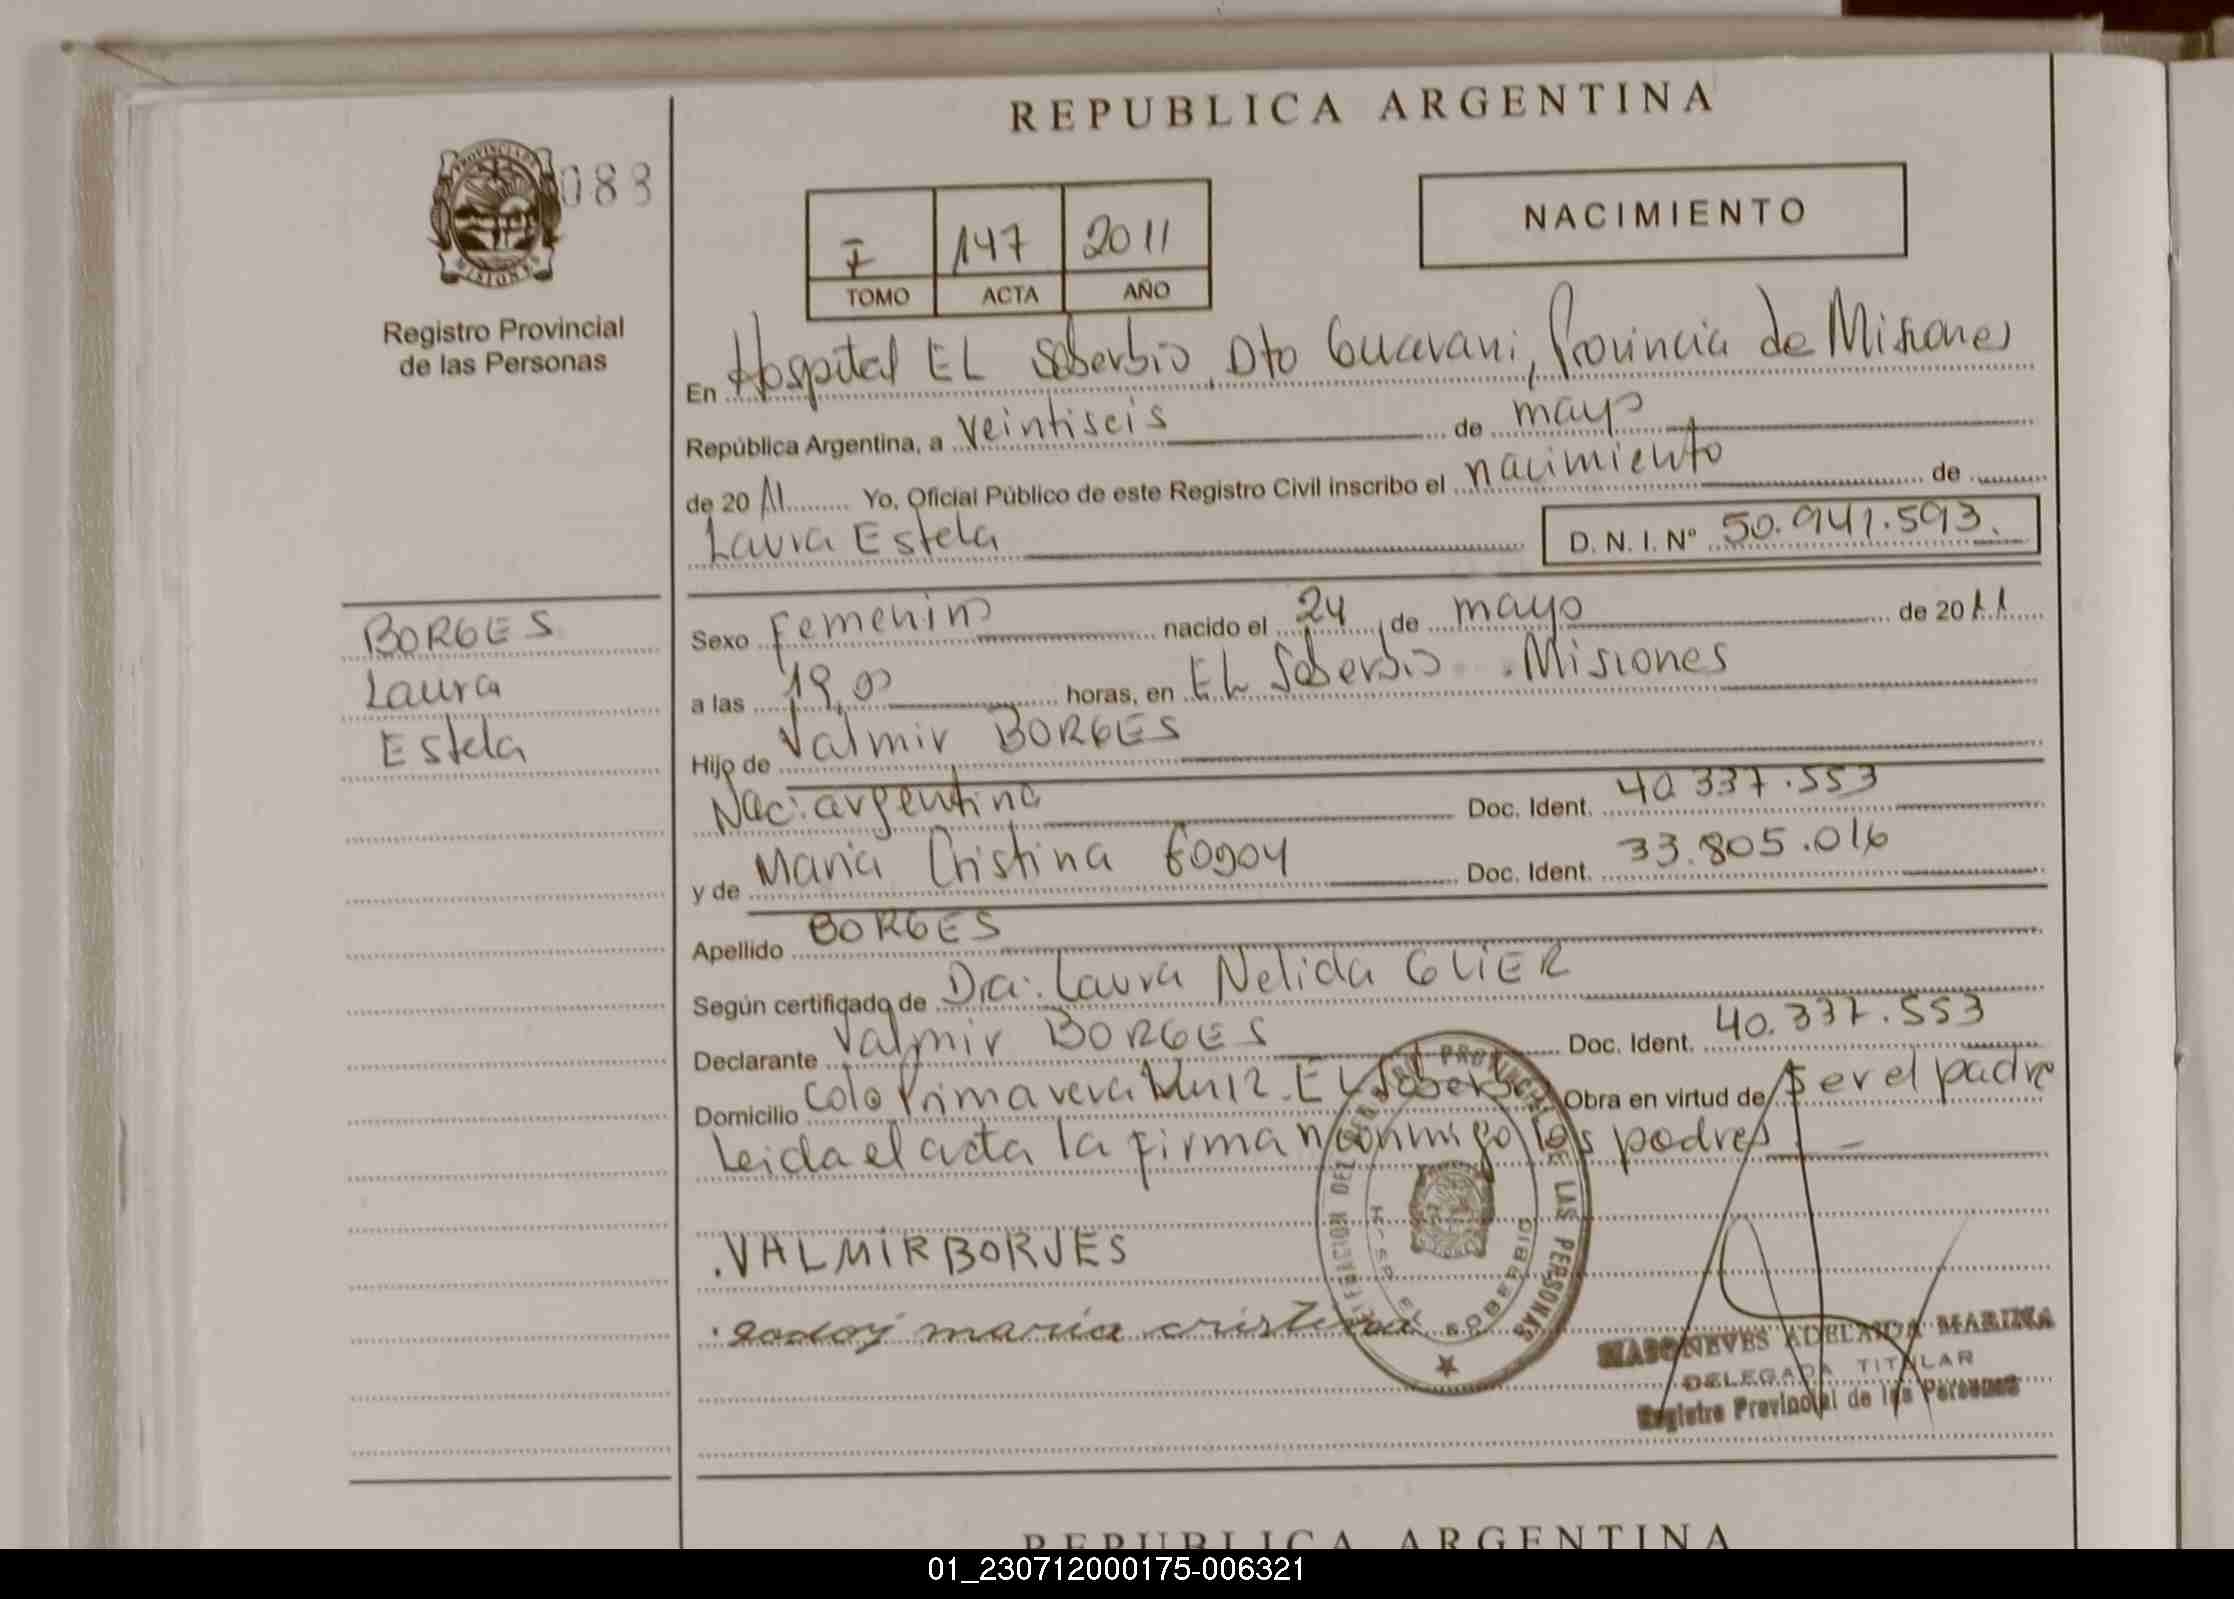 REPUBLICA ARGENTINA
PROVINCIA DE
MISIONES
088
Registro Provincial
de las Personas
I 147 2011
TOMO ACTA AÑO
NACIMIENTO
En Hospital EL Soberbio, Dto Guarani, Provincia de Misiones
República Argentina, a veintiseis de mayo
de 2011 Yo, Oficial Público de este Registro Civil inscribo el nacimiento de
Laura Estela D. N. I. Nº 50.941.593.
BORGES
Laura
Estela
Sexo Femenino nacido el 24 de mayo de 2011
a las 19,00 horas, en EL Soberbio . Misiones
Hijo de Valmir BORGES
Nac: argentina Doc. Ident. 40.337.553
y de Maria Cristina Godoy Doc. Ident. 33.805.016
Apellido BORGES
Según certificado de Dra: Laura Nelida GLIER
Declarante Valmir BORGES Doc. Ident. 40.337.553
Domicilio Colo Primavera EL Soberbio Obra en virtud de Ser el padre
Leida el acta la firman conmigo los padres.
.VALMIRBORJES
.godoy maria cristina
DELEGACION DEL REGISTRO PROVINCIAL DE LAS PERSONAS
EL SOBERBIO
ADELAIDA MARINA
DELEGADA TITULAR
Registro Provincial de las Personas
REPUBLICA ARGENTINA
01_230712000175-006321